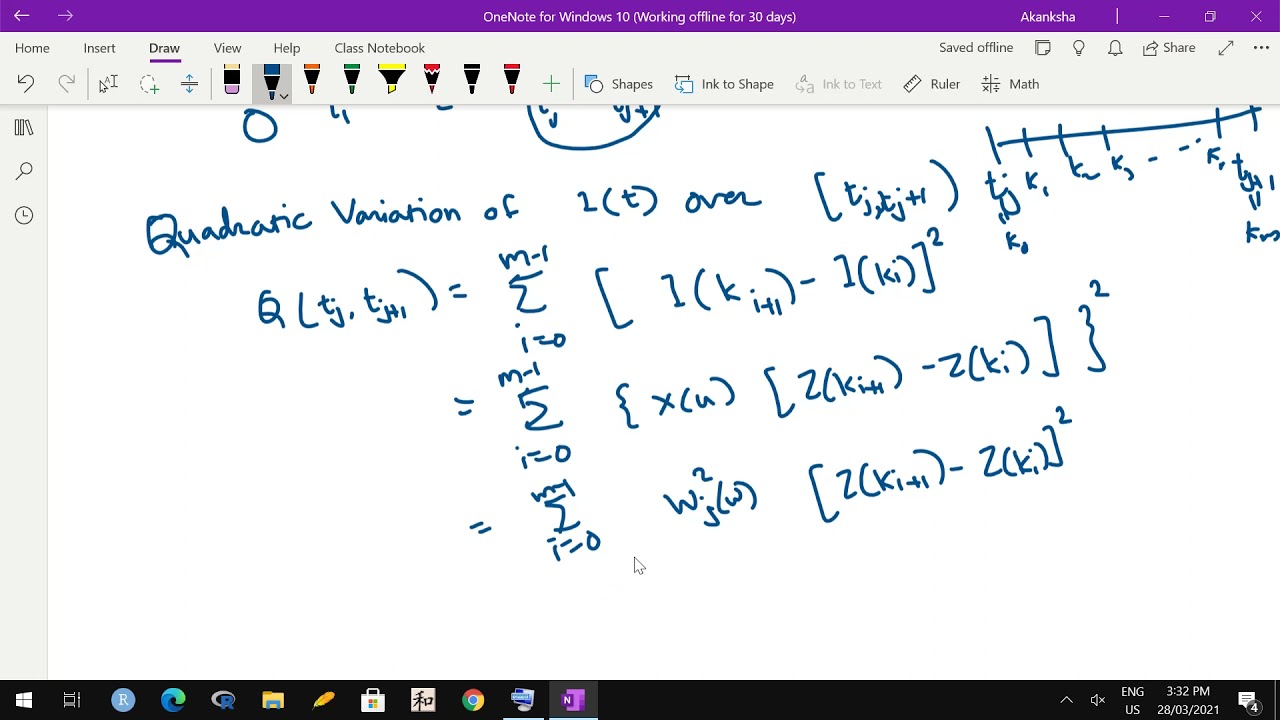 OneNote for Windows 10 (Working offline for 30 days)
Akanksha
Home Insert Draw View Help Class Notebook
Saved offline Share
Shapes Ink to Shape Ink to Text Ruler Math
0 t₁ tⱼ tⱼ₊₁
tⱼ k₁ k₂ k₃ - - ... tⱼ₊₁
k₀ kₘ
Quadratic Variation of I(t) over [tⱼ, tⱼ₊₁)
Q(tⱼ, tⱼ₊₁) = Σ_{i=0}^{m-1} [I(k_{i+1}) - I(kᵢ)]²
= Σ_{i=0}^{m-1} { X(u) [Z(k_{i+1}) - Z(kᵢ)] }²
= Σ_{i=0}^{m-1} Wⱼ²(ω) [Z(k_{i+1}) - Z(kᵢ)]²
R
和
N
ENG
US
3:32 PM
28/03/2021
4